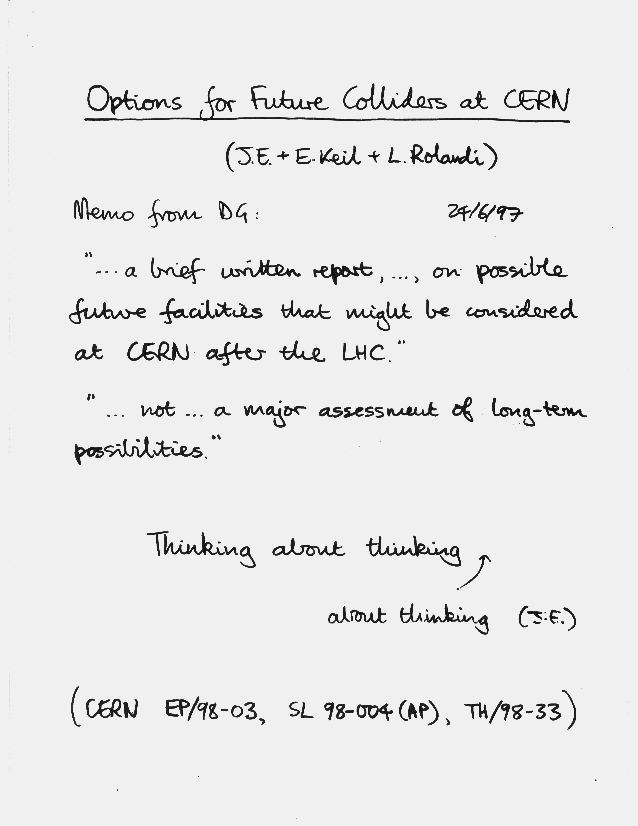 Options for Future Colliders at CERN
(J.E. + E. Keil + L. Rolandi)
Memo from DG: 24/6/97
"... a brief written report, ..., on possible
future facilities that might be considered
at CERN after the LHC."
"... not ... a major assessment of long-term
possibilities."
Thinking about thinking
about thinking (J.E.)
(CERN EP/98-03, SL 98-004 (AP), TH/98-33)